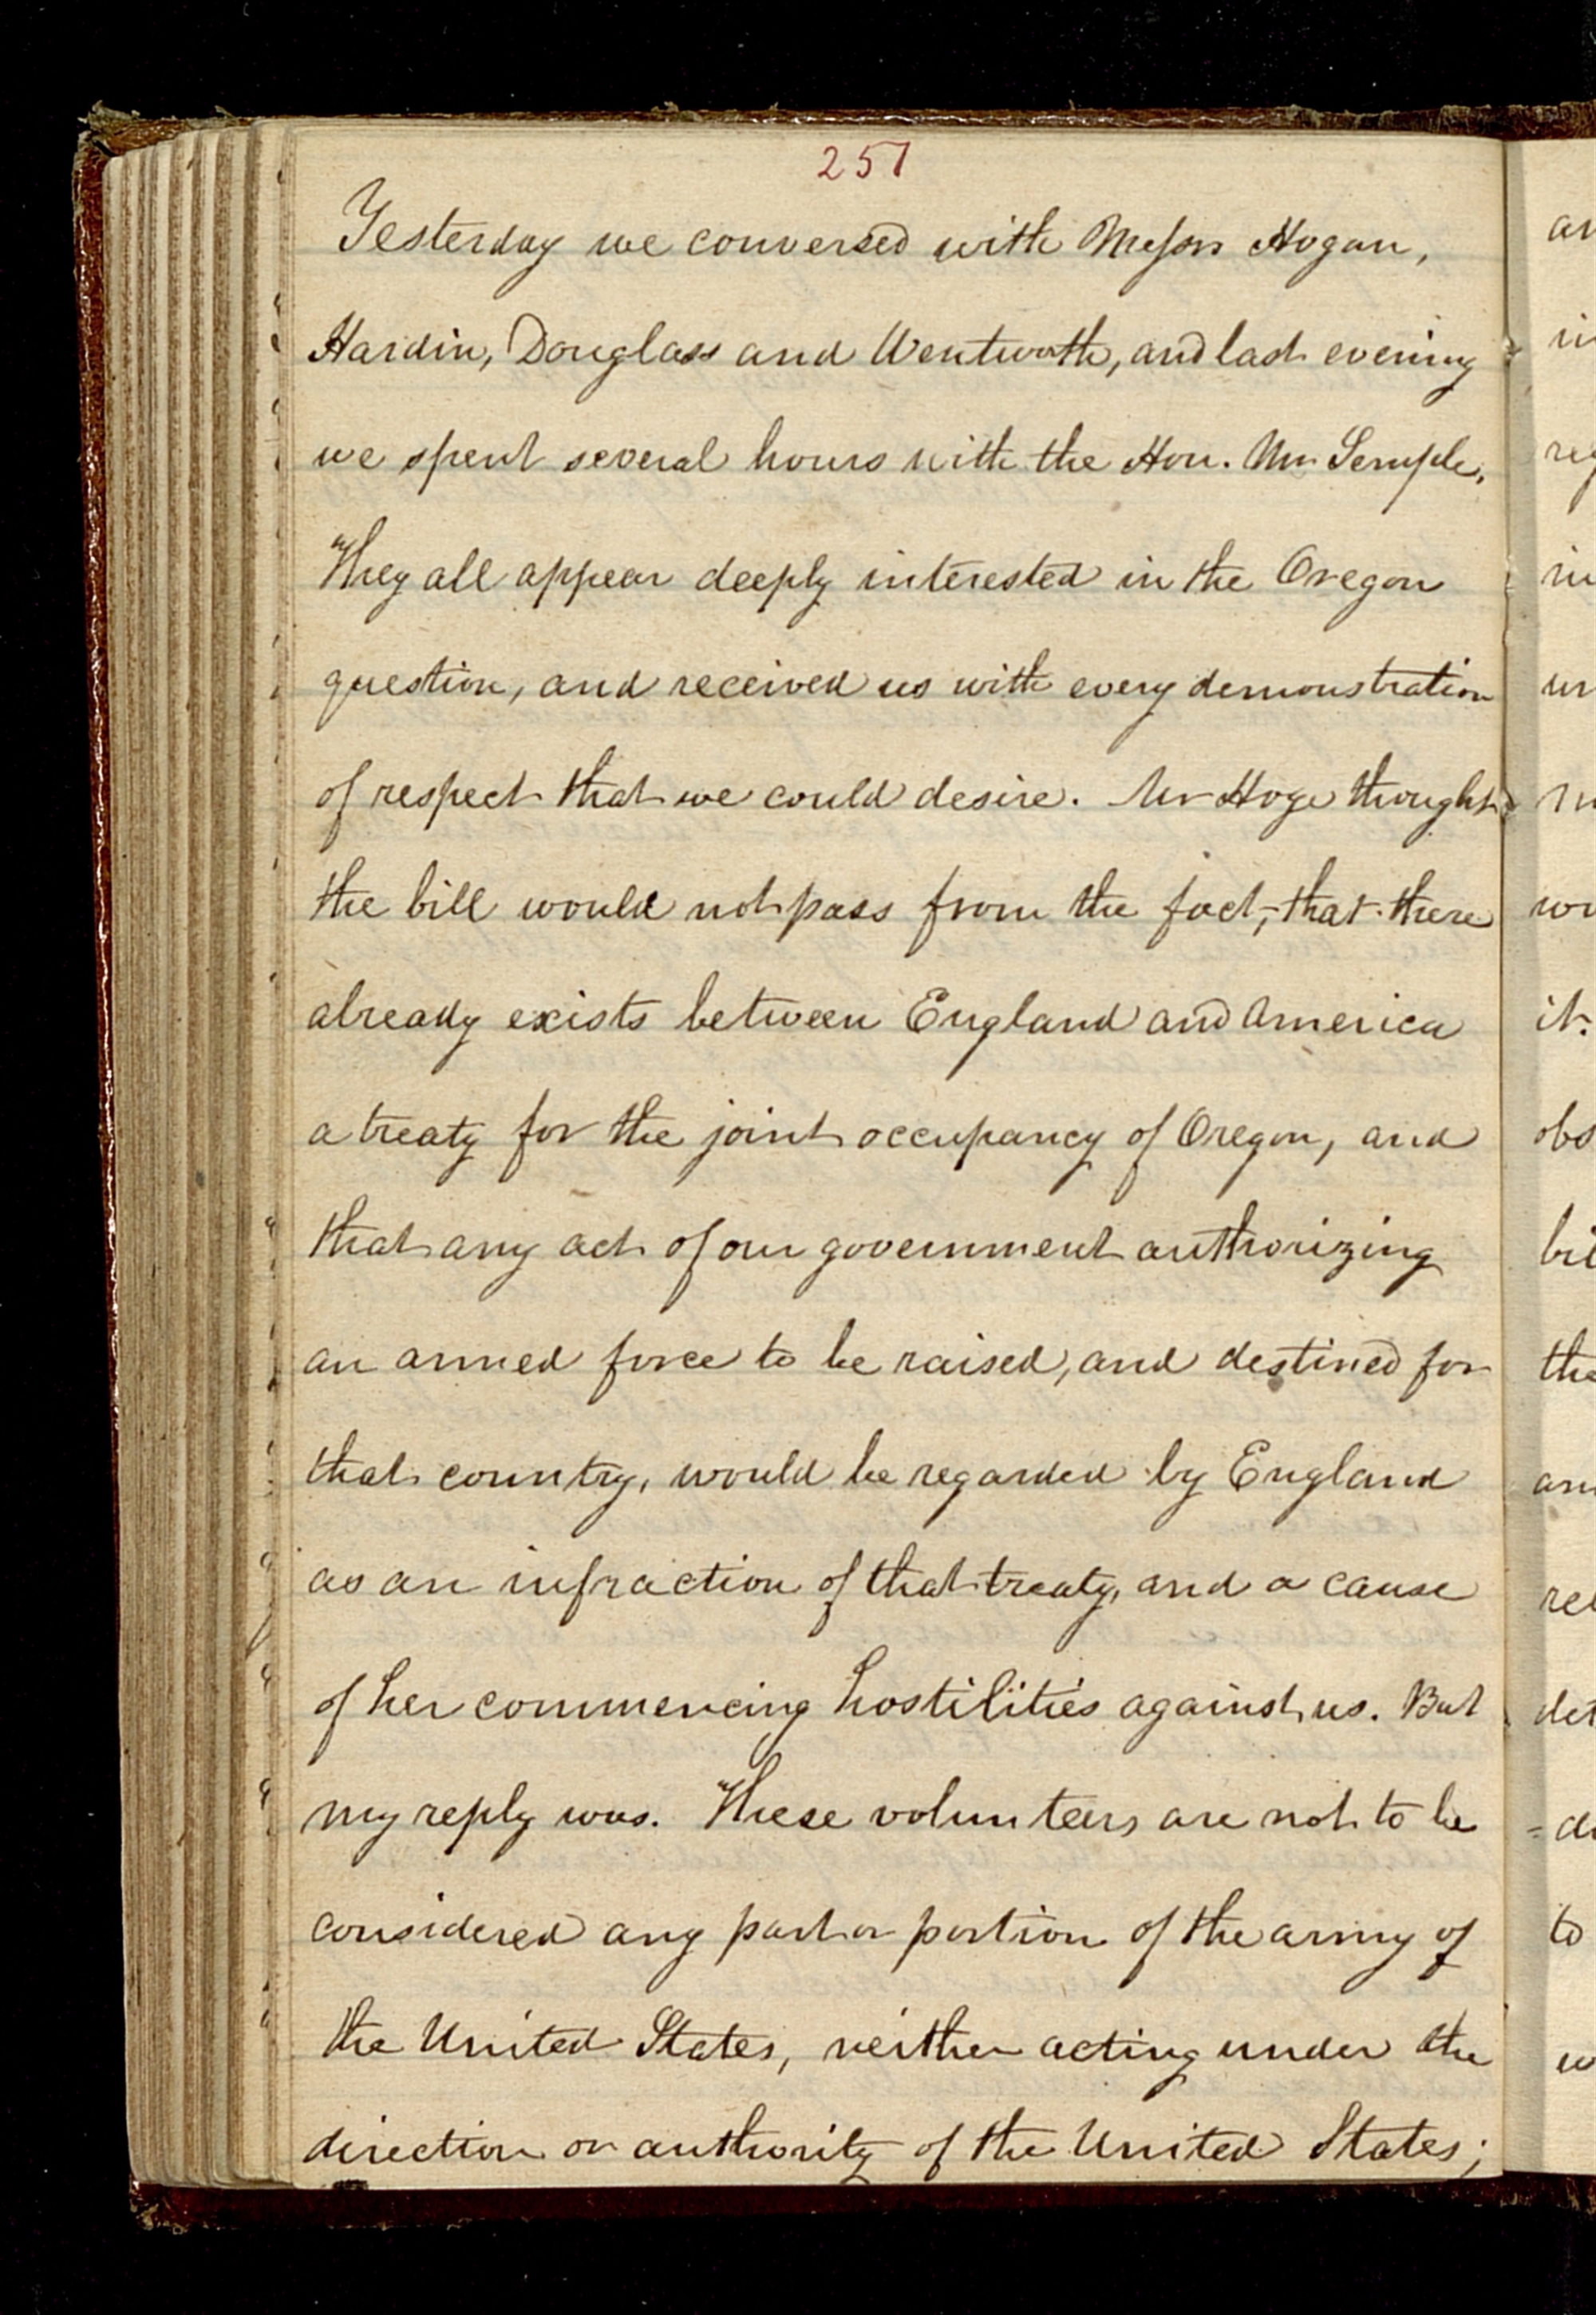 251
Yesterday we conversed with Messrs Hogan,
Hardin, Douglass and Wentworth, and last evening
we spent several hours with the Hon. Mr Semple,
They all appear deeply interested in the Oregon
question, and received us with every demonstration
of respect that we could desire. Mr Hoge thought
the bill would not pass from the fact, that there
already exists between England and America
a treaty for the joint occupancy of Oregon, and
that any act of our government authorizing
an armed force to be raised, and destined for
that country, would be regarded by England
as an infraction of that treaty, and a cause
of her commencing hostilities against us. But
my reply was. These volunteers are not to be
considered any part or portion of the army of
the United States, neither acting under the
direction or authority of the United States;